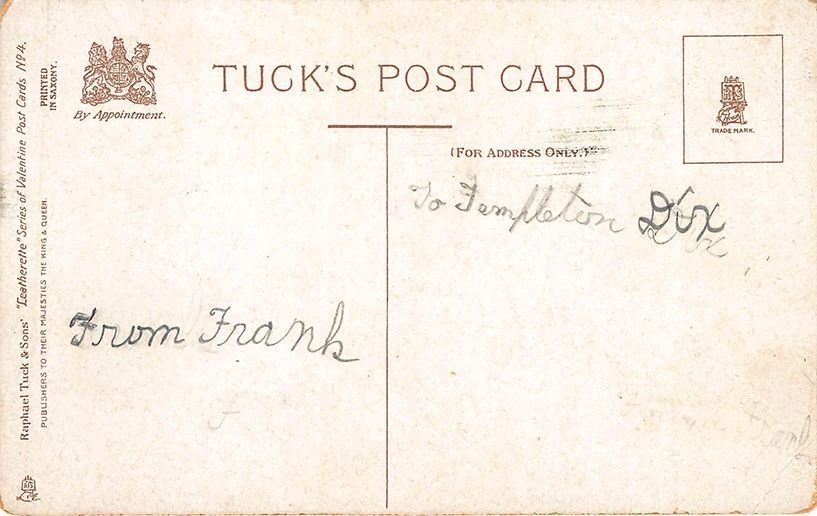 Raphael Tuck & Sons' "Leatherette" Series of Valentine Post Cards Nº 4.
PUBLISHERS TO THEIR MAJESTIES THE KING & QUEEN.
PRINTED
IN SAXONY.
By Appointment.
TUCK'S POST CARD
(FOR ADDRESS ONLY.)
TRADE MARK.
To Templeton Dix
From Frank